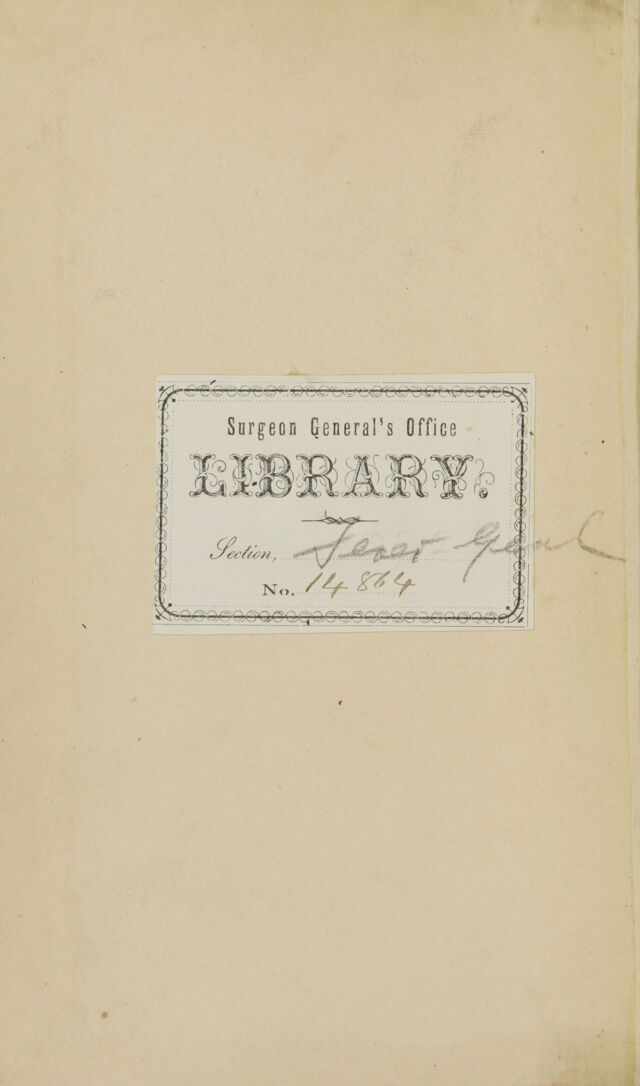 Surgeon General's Office
LIBRARY.
Section,
No. 14864